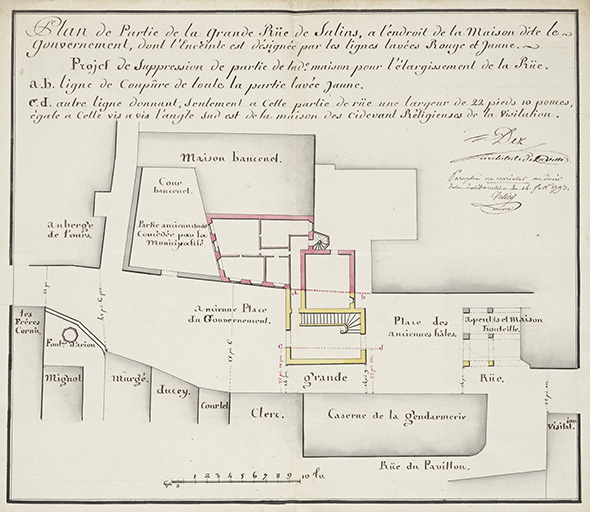 Plan de Partie de la Grande Rüe de Salins, a l'endroit de la Maison dite le
Gouvernement, dont l'Enceinte est désignée par les lignes lavées Rouge et Jaune.
Projet de Suppression de partie de lad.e maison pour l'élargissement de la Rüe.
a.b. ligne de Coupûre de toute la partie lavée Jaune.
c.d. autre ligne donnant, seulement a Cette partie de rüe une largeur de 22 pieds 10 pouces,
égale a Celle vis a vis l'angle sud est de la maison des Cidevant Réligieuses de la Visitation.
Dez
architecte
ne varietur
Maison bancenel.
Cour
bancenel.
Partie anciennement
Concédée par la
Municipalité
auberge
de l'ours.
ancienne Place
du Gouvernement.
a
b
c
d
Place des
anciennes hales.
apentis et maison
bouteille.
les
Frères
Cornu.
Font.e d'arion
Mignot
Murgé.
ducey.
Courlet
Clerc.
grande
Rüe.
Caserne de la gendarmerie
Visitat
ion
Rüe du Pavillon.
1 2 3 4 5 6 7 8 9 10 to.